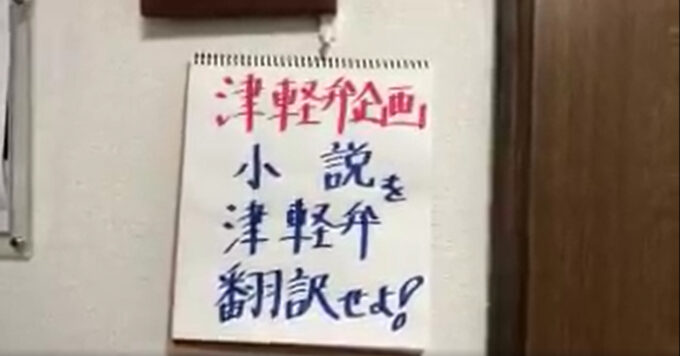 津軽弁企画
小説を
津軽弁
翻訳せよ!